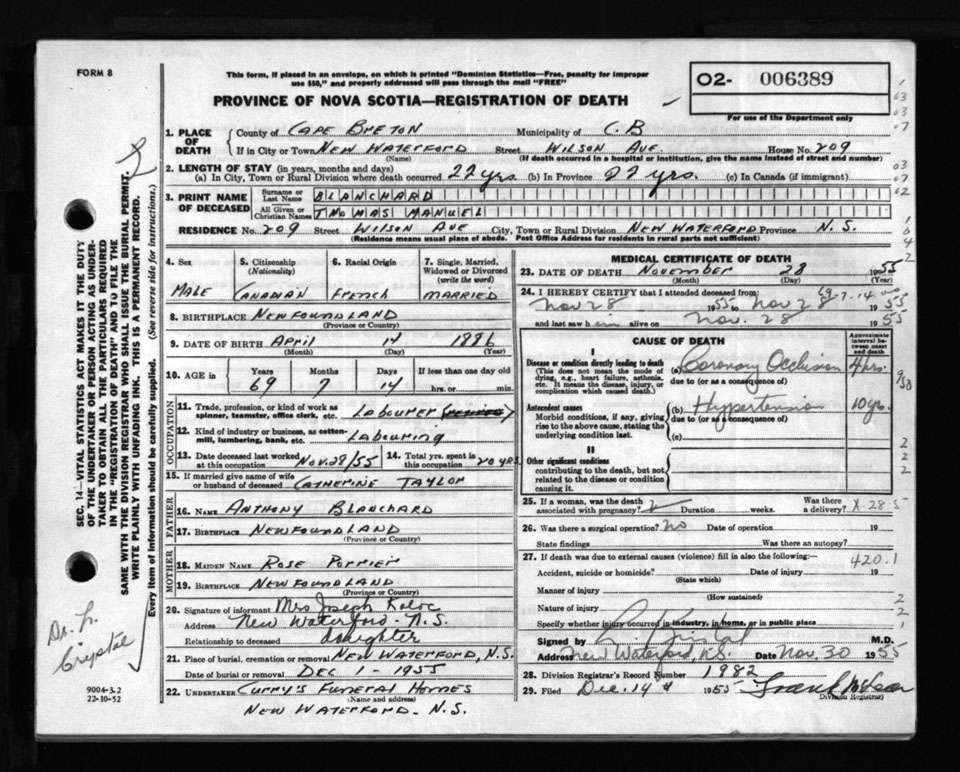 FORM 8
This form, if placed in an envelope, on which is printed "Dominion Statistics—Free, penalty for improper
use $50," and properly addressed will pass through the mail "FREE"
O2- 006389
For use of the Department only
PROVINCE OF NOVA SCOTIA—REGISTRATION OF DEATH
SEC. 14—VITAL STATISTICS ACT MAKES IT THE DUTY
OF THE UNDERTAKER OR PERSON ACTING AS UNDER-
TAKER TO OBTAIN ALL THE PARTICULARS REQUIRED
IN THE "REGISTRATION OF DEATH" AND TO FILE THE
SAME WITH THE DIVISION REGISTRAR WHO SHALL ISSUE THE BURIAL PERMIT.
WRITE PLAINLY WITH UNFADING INK. THIS IS A PERMANENT RECORD.
Every item of information should be carefully supplied. (See reverse side for instructions.)
1. PLACE OF DEATH County of CAPE BRETON Municipality of C.B
If in City or Town NEW WATERFORD Street WILSON AVE. House No. 209
(Name) (If death occurred in a hospital or institution, give the name instead of street and number)
2. LENGTH OF STAY (in years, months and days)
(a) In City, Town or Rural Division where death occurred 22 yrs. (b) In Province 22 yrs. (c) In Canada (if immigrant)
3. PRINT NAME OF DECEASED Surname or Last Name BLANCHARD
All Given or Christian Names THOMAS MANUEL
RESIDENCE No. 209 Street WILSON AVE City, Town or Rural Division NEW WATERFORD Province N.S.
(Residence means usual place of abode. Post Office Address for residents in rural parts not sufficient)
4. Sex 5. Citizenship (Nationality) 6. Racial Origin 7. Single, Married, Widowed or Divorced (write the word)
MALE CANADIAN French MARRIED
8. BIRTHPLACE NEWFOUNDLAND
(Province or Country)
9. DATE OF BIRTH April 14 1886
(Month) (Day) (Year)
10. AGE in Years Months Days If less than one day old
69 7 14 hrs. or min.
OCCUPATION
11. Trade, profession, or kind of work as spinner, teamster, office clerk, etc. LABOURER
12. Kind of industry or business, as cotton-mill, lumbering, bank, etc. LABOURING
13. Date deceased last worked at this occupation Nov. 28/55 14. Total yrs. spent in this occupation 20 YRS
15. If married give name of wife or husband of deceased CATHERINE TAYLOR
FATHER
16. NAME ANTHONY BLANCHARD
17. BIRTHPLACE NEWFOUNDLAND
(Province or Country)
MOTHER
18. MAIDEN NAME ROSE POIRIER
19. BIRTHPLACE NEWFOUNDLAND
(Province or Country)
20. Signature of informant Mrs Joseph
Address New Waterford - N.S.
Relationship to deceased daughter
21. Place of burial, cremation or removal NEW WATERFORD, N.S.
Date of burial or removal DEC 1 - 1955
22. UNDERTAKER CURRY'S FUNERAL HOMES
(Name and address)
NEW WATERFORD - N.S.
MEDICAL CERTIFICATE OF DEATH
23. DATE OF DEATH November 28 1955
(Month) (Day) (Year)
24. I HEREBY CERTIFY that I attended deceased from: 69-7-14
Nov 28 1955 Nov 28 1955
and last saw him alive on Nov. 28 1955
CAUSE OF DEATH
Approximate interval between onset and death
I
Disease or condition directly leading to death
(This does not mean the mode of dying, e.g., heart failure, asthenia, etc. It means the disease, injury, or complication which caused death.)
(a) Coronary Occlusion 4 hrs.
due to (or as a consequence of)
Antecedent causes
Morbid conditions, if any, giving rise to the above cause, stating the underlying condition last.
(b) Hypertension 10 yrs.
due to (or as a consequence of)
(c)
II
Other significant conditions
contributing to the death, but not related to the disease or condition causing it.
25. If a woman, was the death associated with pregnancy? Duration weeks. Was there a delivery? X-28-5
26. Was there a surgical operation? no Date of operation 19
State findings Was there an autopsy?
27. If death was due to external causes (violence) fill in also the following: 420.1
Accident, suicide or homicide? Date of injury 19
(State which)
Manner of injury
(How sustained)
Nature of injury
Specify whether injury occurred in industry, in home, or in public place
Signed by M.D.
Address New Waterford, N.S. Date Nov. 30 1955
28. Division Registrar's Record Number 1982
29. Filed Dec. 14 1955
Division Registrar)
Dr. L.
Crystal
9004-3.2
22-10-52